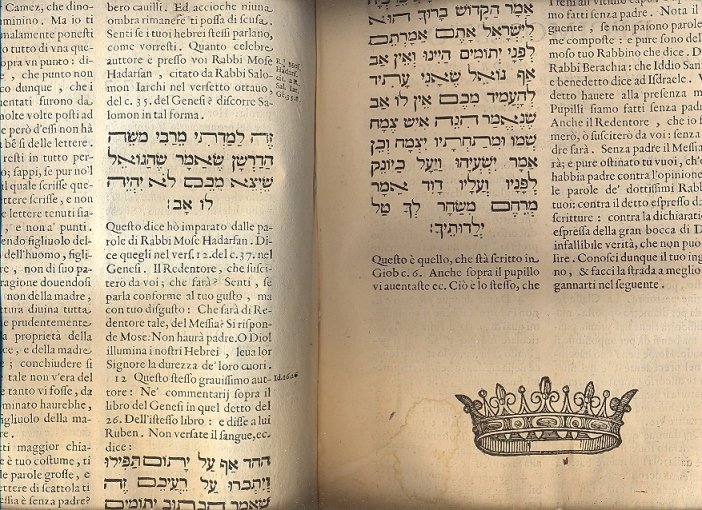 i Camez, che dino-
minimo. Ma io ti
malamente ponesti
o tutto di vna que-
opra vn punto: di-
, che punto non
co dunque, che i
entati furono da
molte volte posti ad
però d'essi non hà
bè si delle lettere.
resti in tutto per-
o; sappi, se pur no'l
l quale scrisse que-
ttere scrisse, e non
e lettere tenuti sia-
, e nona' punti.
endo figliuolo del-
dell'huomo, figli-
re, non di suo pa-
ragione douendosi
non della madre,
tura diuina tutta
e prudentemente
a proprietà della
ce, e della madre
; conchiudere si
tale non v'era del
e tanto vi fosse, da
minato haurebhe,
igliuolo della ma-
re.
tti maggior chia-
è tuo costume, ti
le parole grosse, e
ettere di scattola ti
essia è senza padre?
bero cauilli. Ed accioche niuna
ombra rimanere ti possa di scusa.
Senti se i tuoi hebrei stessi parlano,
come vorresti. Quanto celebre
autore è presso voi Rabbi Mosè
Hadarsan, citato da Rabbi Salo-
mon Iarchi nel versetto ottauo,
del c. 35. del Genesi? discorre Sa-
lomon in tal forma.
R. Mos.
Hadars.
cit. a R.
Sal. Iar.
Gẽ. 35.8.
זה למדתי מרבי משה
הדרשן שאמר שהגואל
שיצא מכם לא יהיה
לו אב:
Questo dice hò imparato dalle pa-
role di Rabbi Mose Hadarsan. Di-
ce quegli nel vers. 12. del c. 37. nel
Genesi. Il Redentore, che susci-
terò da voi; che sarà? Senti, se
parla conforme al tuo gusto, ma
con tuo disgusto: Che sarà di Re-
dentore tale, del Messia? Si rispon-
de Mose: Non haurà padre. O Dio!
illumina i nostri Hebrei, leua lor
Signore la durezza de' loro cuori.
12 Questo stesso grauissimo aut-
tore: Ne' commentarij sopra il
libro del Genesi in quel detto del
26. Dell'istesso libro: e disse a lui
Ruben. Non versate il sangue, ec.
dice:
Id. 26.26
ההד אף על יתום תפילו
ויתכרו על רעיכם זה
שאמר הכתוב יתומים
אמר הקדוש ברוך הוא
לישראל אתם אמרתם
לפני יתומים היינו ואין אב
אף גואל שאני עתיד
להעמיד מכם אין לו אב
שנאמר הנה איש צמח
שמו ומתחתיו יצמח וכן
אמר ישעיהו ויעל כיונק
לפניו ועליו דוד אמר
מרחם משחר לך טל
ילדותיך:
Questo è quello, che stà scritto in
Giob c. 6. Anche sopra il pupillo
vi auentaste ec. Ciò è lo stesso, che
mo fatti senza padre. Nota il
guente, se non paiono parole
me composte: e pure sono del
moso tuo Rabbino che dice. D
Rabbi Berachia: che Iddio San
e benedetto dice ad Isdraele. V
detto hauete alla presenza m
Pupilli siamo fatti senza padr
Anche il Redentore, che io s
merò, ò susciterò da voi: senza
dre sarà. Senza padre il Messia
rà; e pure ostinato tu vuoi, ch'e
habbia padre contra l'opinione
le parole de' dottissimi Rabb
tuoi: contra il detto espresso da
scritture: contra la dichiaratio
espressa della gran bocca di D
infallibile verità, che non può
lire. Conosci dunque il tuo ing
no, & facci la strada a meglio
gannarti nel seguente.